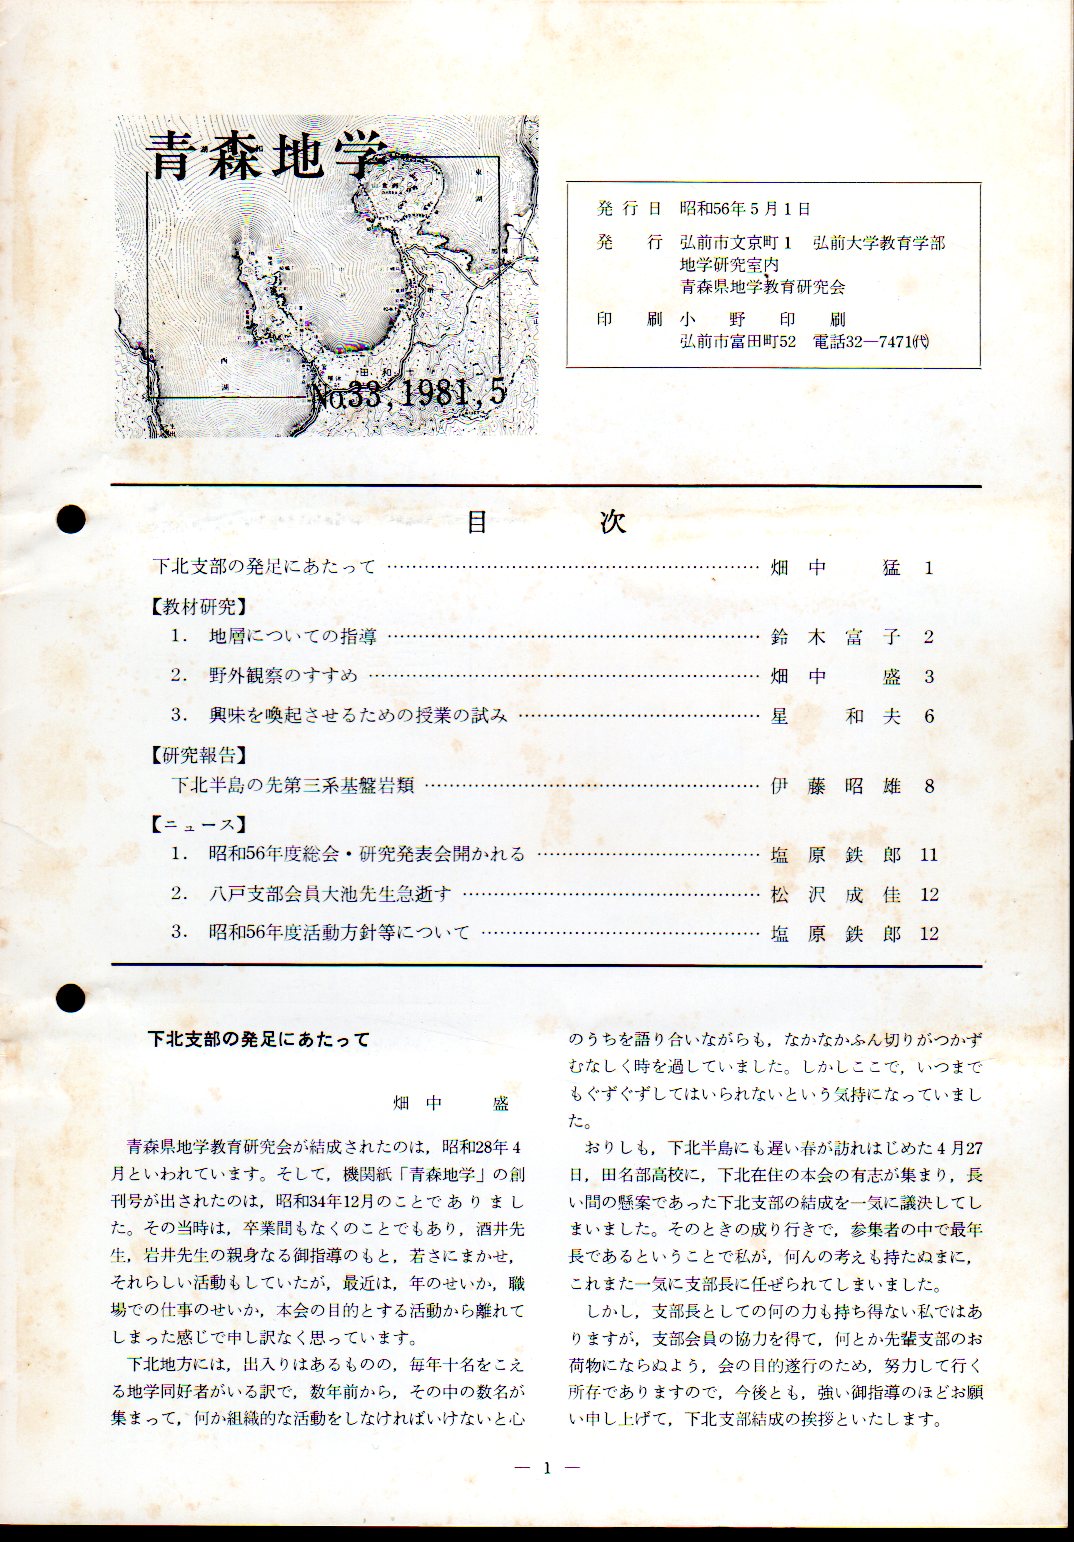 青森地学
東湖
中湖
西湖
田和十
No.33,1981,5
発行日 昭和56年5月1日
発 行 弘前市文京町1 弘前大学教育学部
地学研究室内
青森県地学教育研究会
印 刷 小野印刷
弘前市富田町52 電話32―7471㈹
目次
下北支部の発足にあたって …… 畑中 猛 1
【教材研究】
1. 地層についての指導 …… 鈴木富子 2
2. 野外観察のすすめ …… 畑中 盛 3
3. 興味を喚起させるための授業の試み …… 星 和夫 6
【研究報告】
下北半島の先第三系基盤岩類 …… 伊藤昭雄 8
【ニュース】
1. 昭和56年度総会・研究発表会開かれる …… 塩原鉄郎 11
2. 八戸支部会員大池先生急逝す …… 松沢成佳 12
3. 昭和56年度活動方針等について …… 塩原鉄郎 12
下北支部の発足にあたって
畑中 盛
青森県地学教育研究会が結成されたのは，昭和28年4
月といわれています。そして，機関紙「青森地学」の創
刊号が出されたのは，昭和34年12月のことでありまし
た。その当時は，卒業間もなくのことでもあり，酒井先
生，岩井先生の親身なる御指導のもと，若さにまかせ，
それらしい活動もしていたが，最近は，年のせいか，職
場での仕事のせいか，本会の目的とする活動から離れて
しまった感じで申し訳なく思っています。
下北地方には，出入りはあるものの，毎年十名をこえ
る地学同好者がいる訳で，数年前から，その中の数名が
集まって，何か組織的な活動をしなければいけないと心
のうちを語り合いながらも，なかなかふん切りがつかず
むなしく時を過していました。しかしここで，いつまで
もぐずぐずしてはいられないという気持になっていまし
た。
おりしも，下北半島にも遅い春が訪れはじめた4月27
日，田名部高校に，下北在住の本会の有志が集まり，長
い間の懸案であった下北支部の結成を一気に議決してし
まいました。そのときの成り行きで，参集者の中で最年
長であるということで私が，何んの考えも持たぬまに，
これまた一気に支部長に任ぜられてしまいました。
しかし，支部長としての何の力も持ち得ない私ではあ
りますが，支部会員の協力を得て，何とか先輩支部のお
荷物にならぬよう，会の目的遂行のため，努力して行く
所存でありますので，今後とも，強い御指導のほどお願
い申し上げて，下北支部結成の挨拶といたします。
― 1 ―